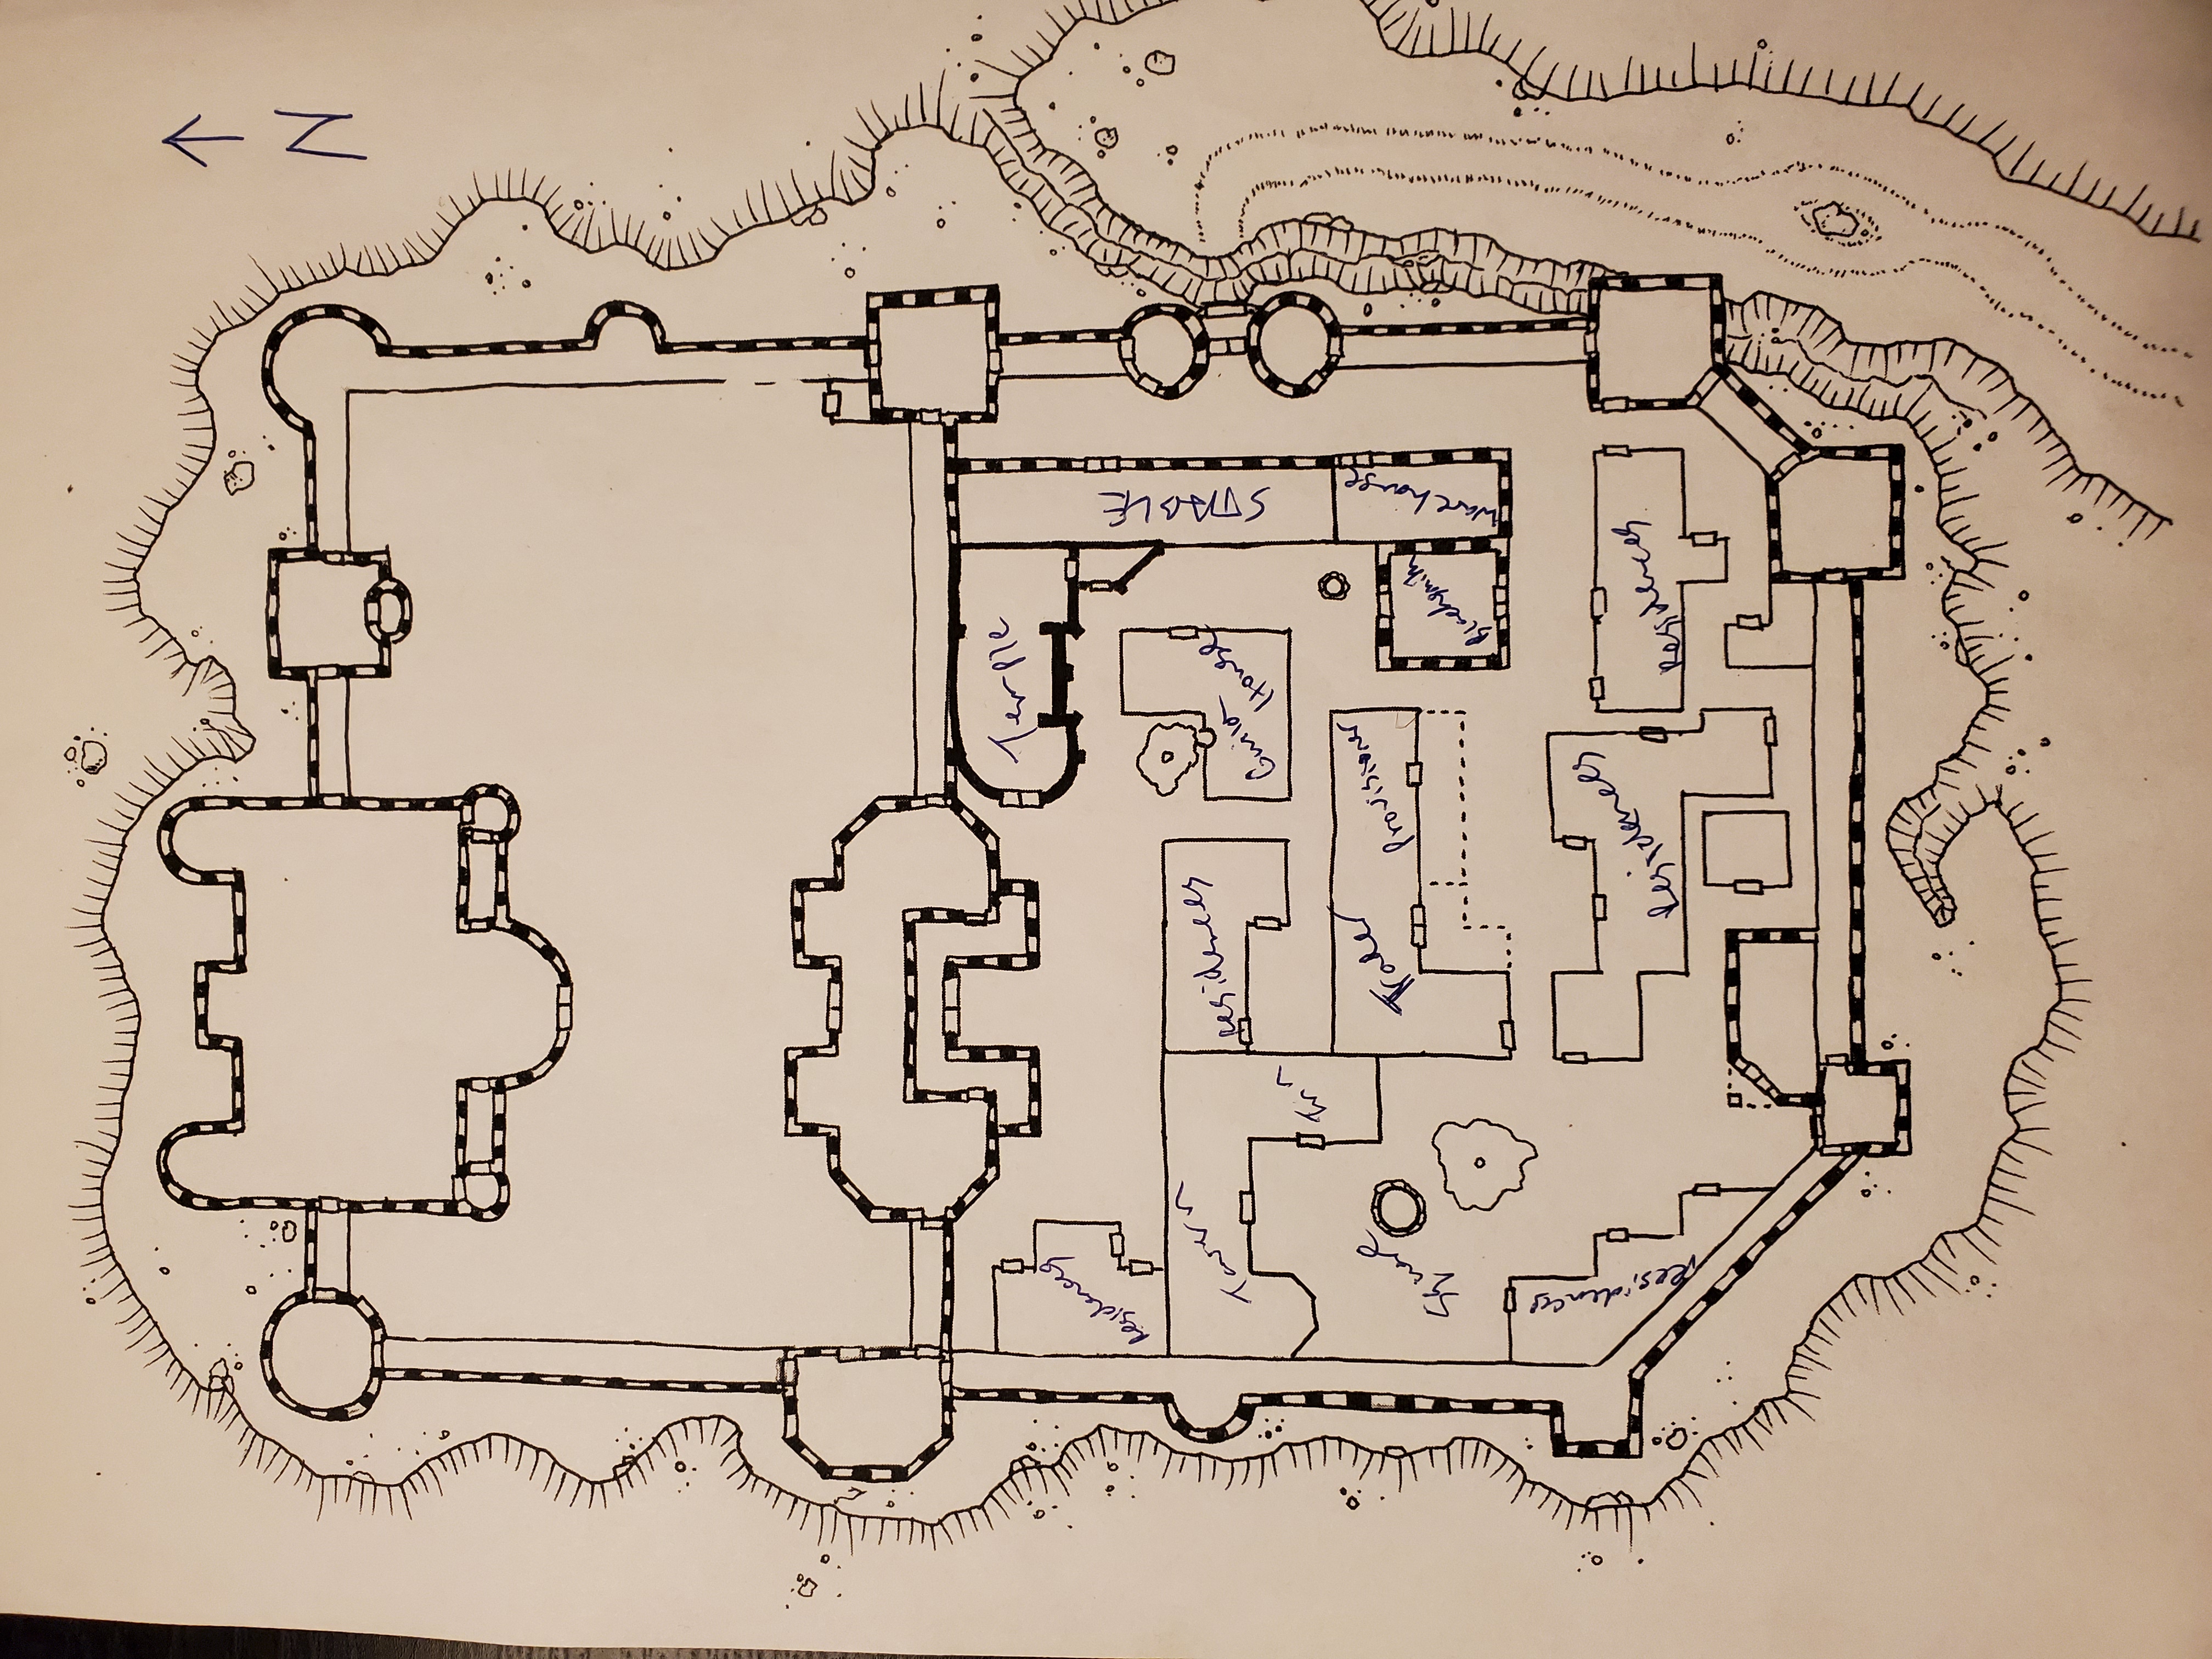 N
Temple
Residences
STABLE
Tavern
Residences
Guild
House
Inn
Trader
Provisioner
Square
Blacksmith
Warehouse
Residences
Residences
Residences